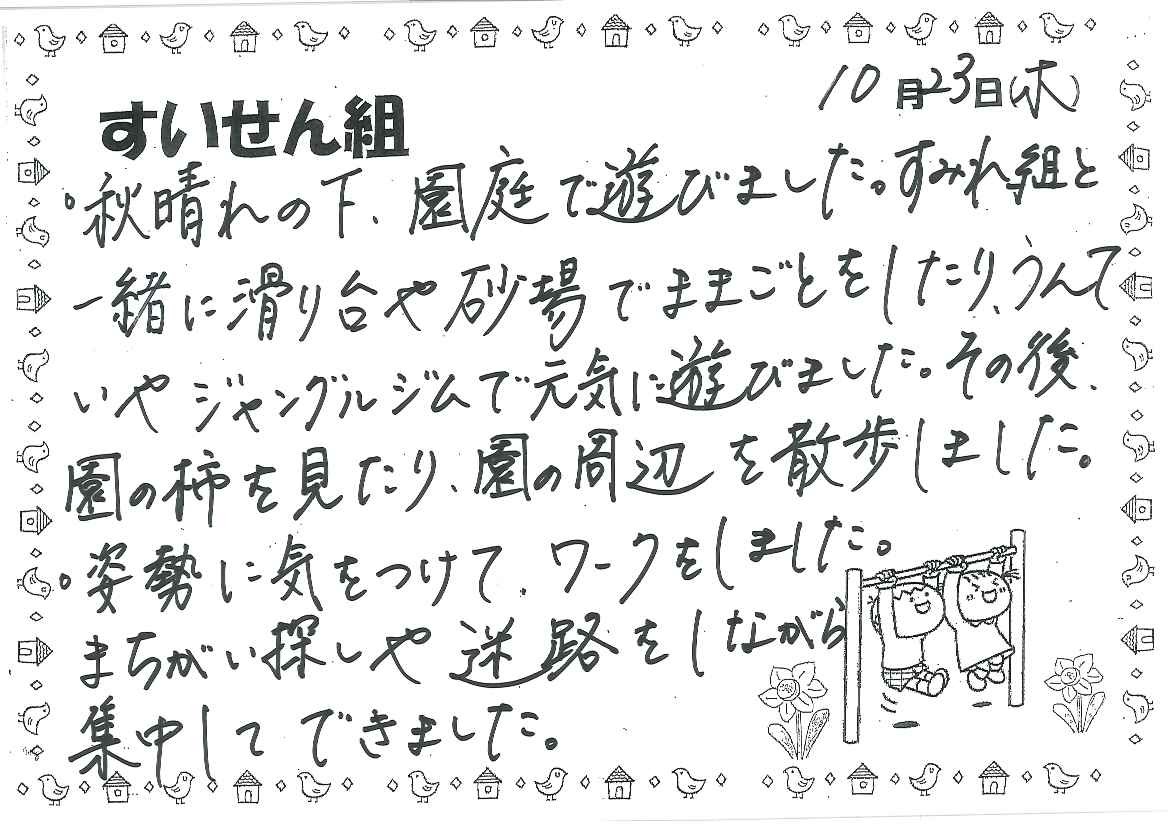 10月23日(木)
すいせん組
。秋晴れの下、園庭で遊びました。すみれ組と
一緒に滑り台や砂場でままごとをしたり、うんて
いやジャングルジムで元気に遊びました。その後、
園の柿を見たり、園の周辺を散歩しました。
。姿勢に気をつけて、ワークをしました。
まちがい探しや迷路をしながら
集中してできました。